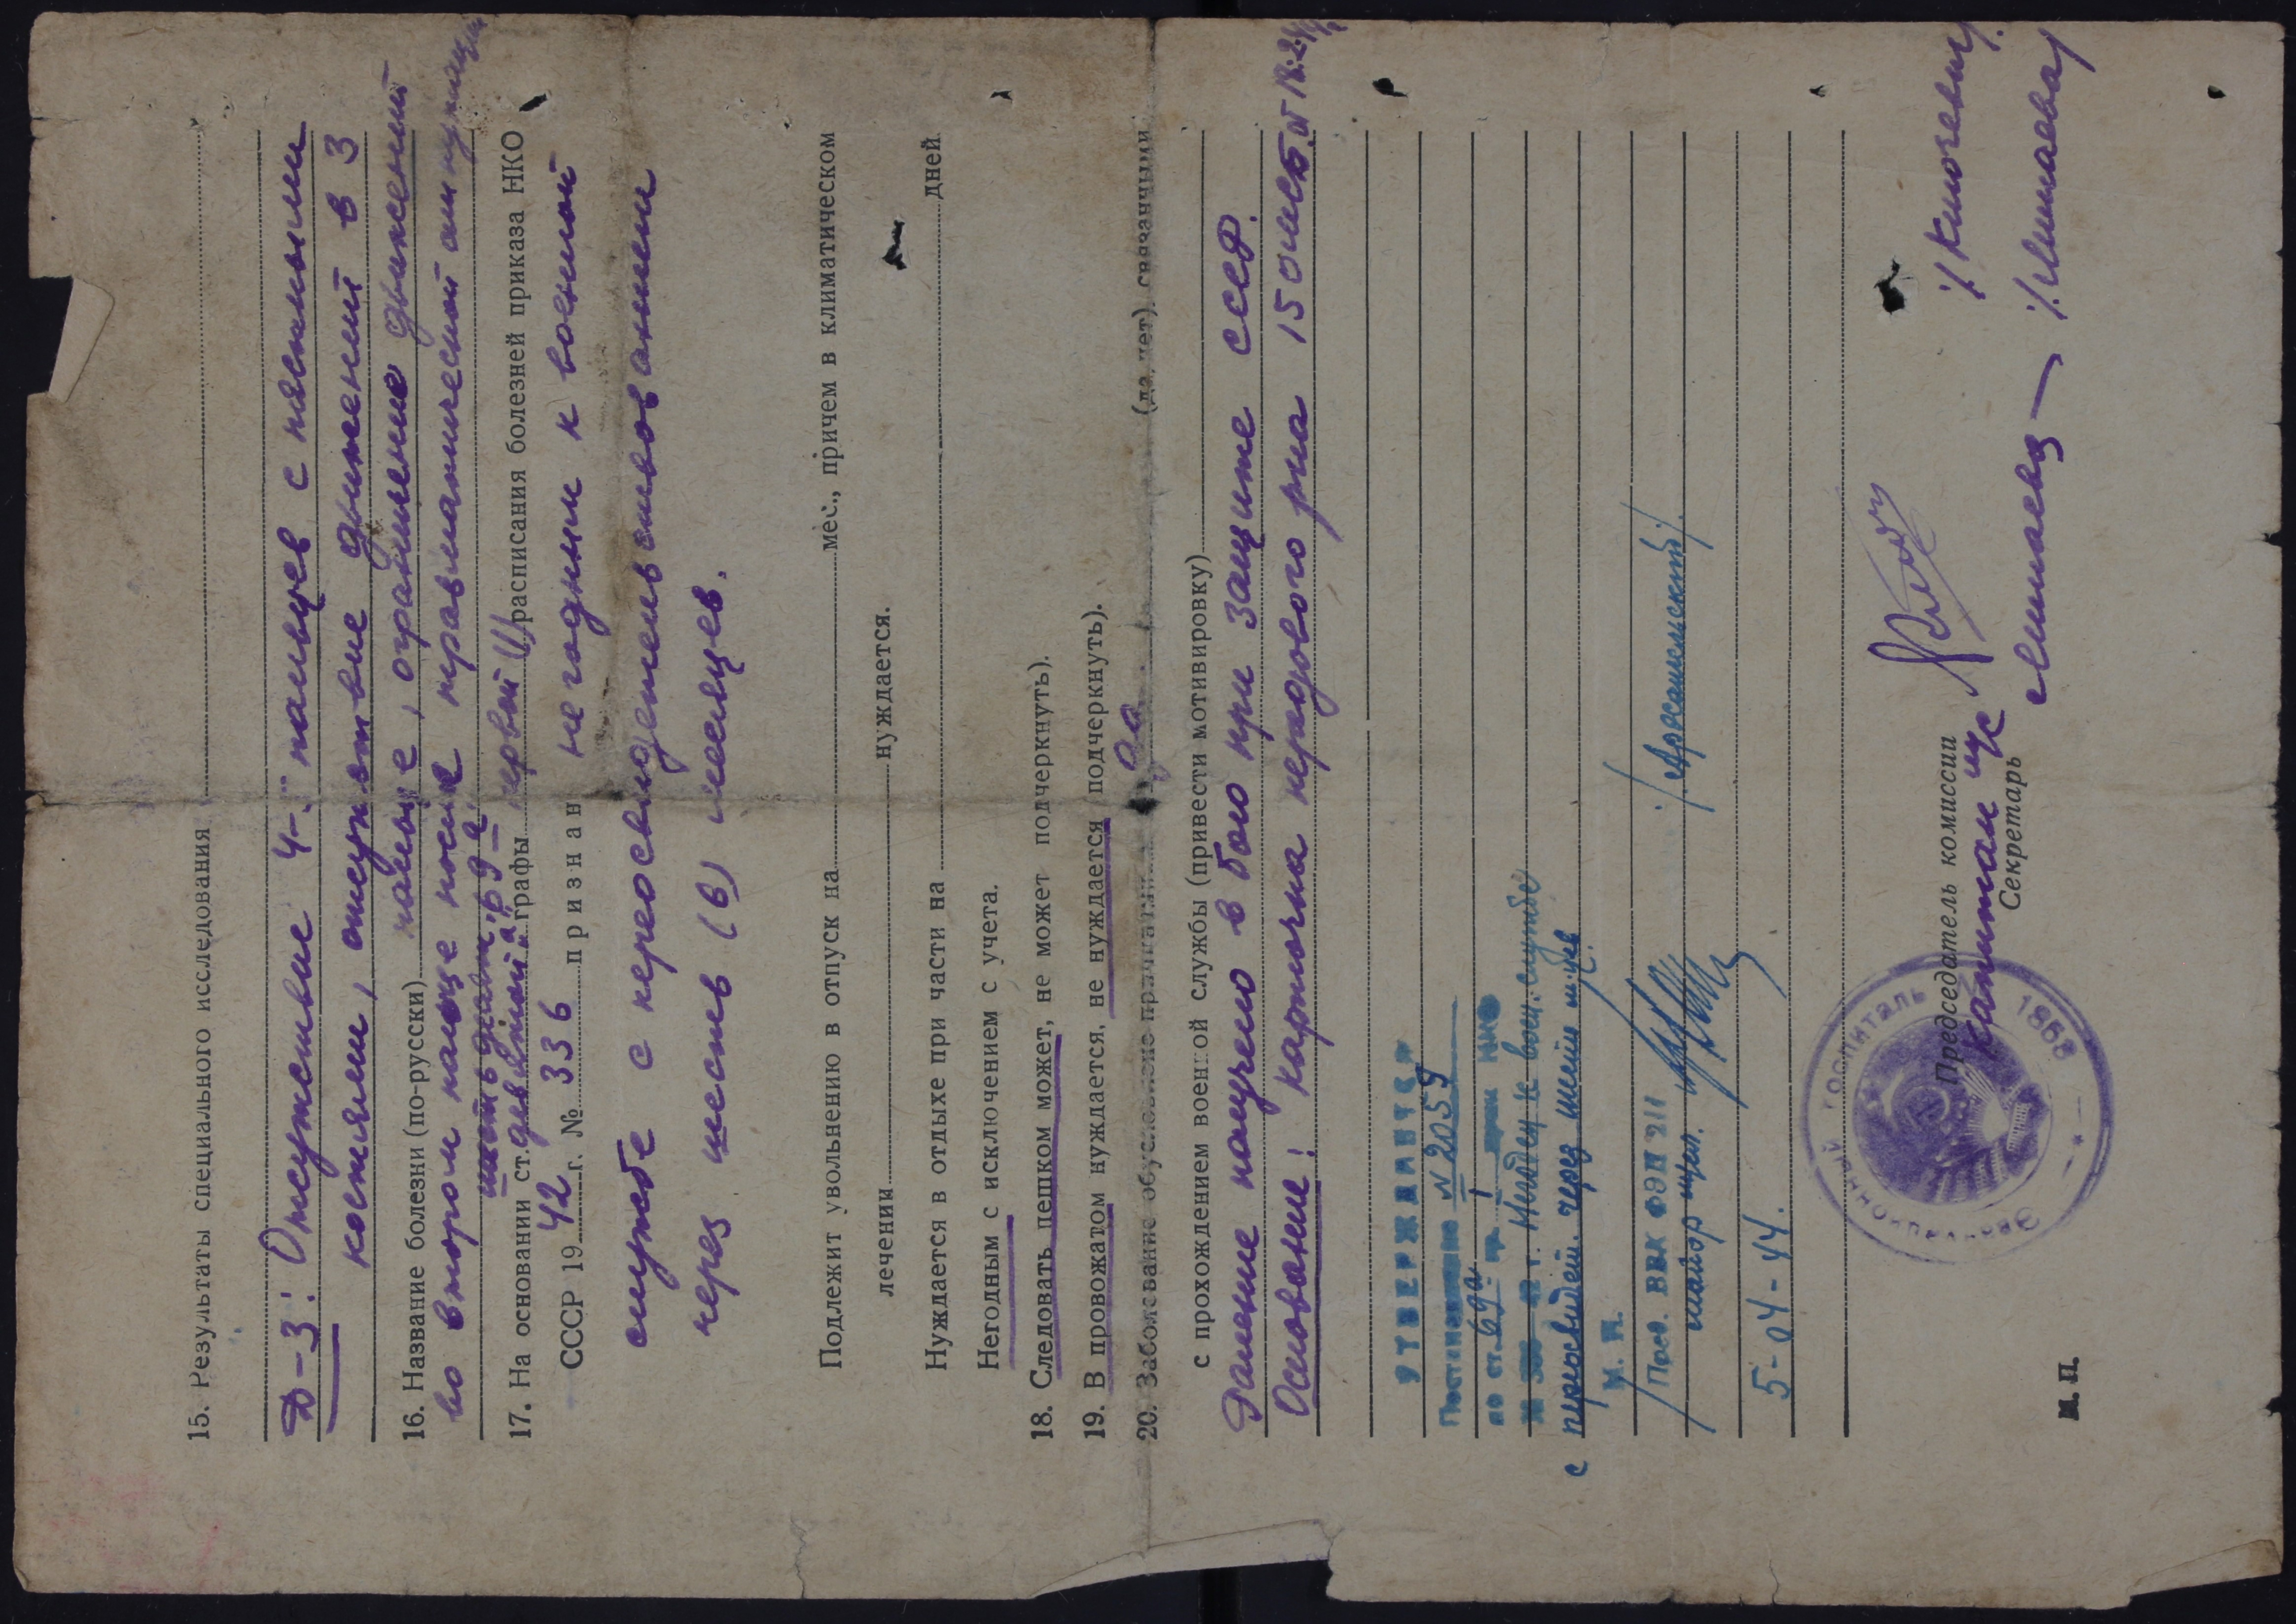 15. Результаты специального исследования
Д-з: Отсутствие 4-х пальцев с пястными
костями, отсутствие движений в 3
16. Название болезни (по-русски) пальце, ограничение движений
во втором пальце после травматической ампутации
шесть девять "б9 а"
17. На основании ст. девятой графы первой (I) расписания болезней приказа НКО
СССР 1942 г. № 336 признан не годным к военной
службе с переосвидетельствованием
через шесть (6) месяцев.
Подлежит увольнению в отпуск на мес., причем в климатическом
лечении нуждается.
Нуждается в отдыхе при части на дней
Негодным с исключением с учета.
18. Следовать пешком может, не может подчеркнуть).
19. В провожатом нуждается, не нуждается подчеркнуть).
20. Заболевание обусловлено причинами да (да, нет) связанными
с прохождением военной службы (привести мотивировку)
Ранение получено в бою при защите СССР.
Основание: карточка передового р-на 15 от 18.2.44
УТВЕРЖДАЕТСЯ
Постановление № 2059
по ст. 69а гр. I прик НКО
№ 336 42 г. Негоден к воен. службе
с переосвидет. через шесть м-цев
М. П.
Пред. ВВК ФЭП 211
майор м/сл. /Архангельский/.
5-04-44.
Эвакуационный госпиталь
1868
Председатель комиссии
капитан м/с
Секретарь
М. П.